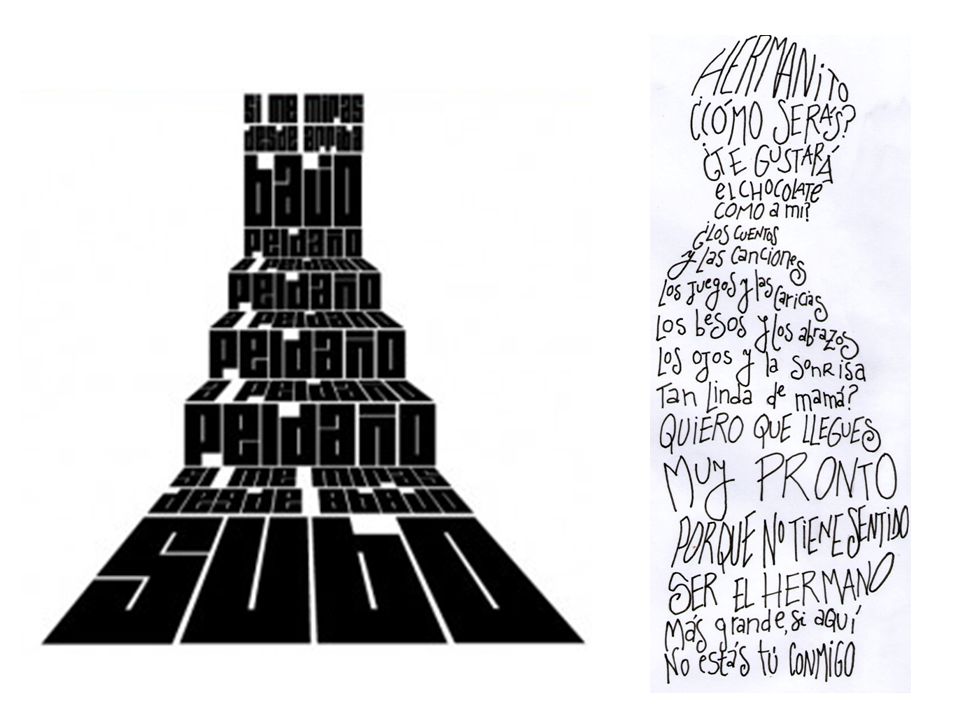 si me miras
desde arriba
bajo
peldaño
a peldaño
peldaño
a peldaño
peldaño
a peldaño
peldaño
si me miras
desde abajo
subo
HERMANITO
¿CÓMO SERÁS?
¿TE GUSTARÁ
EL CHOCOLATE
COMO a mi?
¿LOS CUENTOS
y las canciones
Los juegos y las caricias
Los besos y los abrazos
Los ojos y la sonrisa
Tan linda de mamá?
QUIERO QUE LLEGUES
MUY PRONTO
PORQUE NO TIENE SENTIDO
SER EL HERMANO
Más grande, si aquí
No estás tú CONMIGO